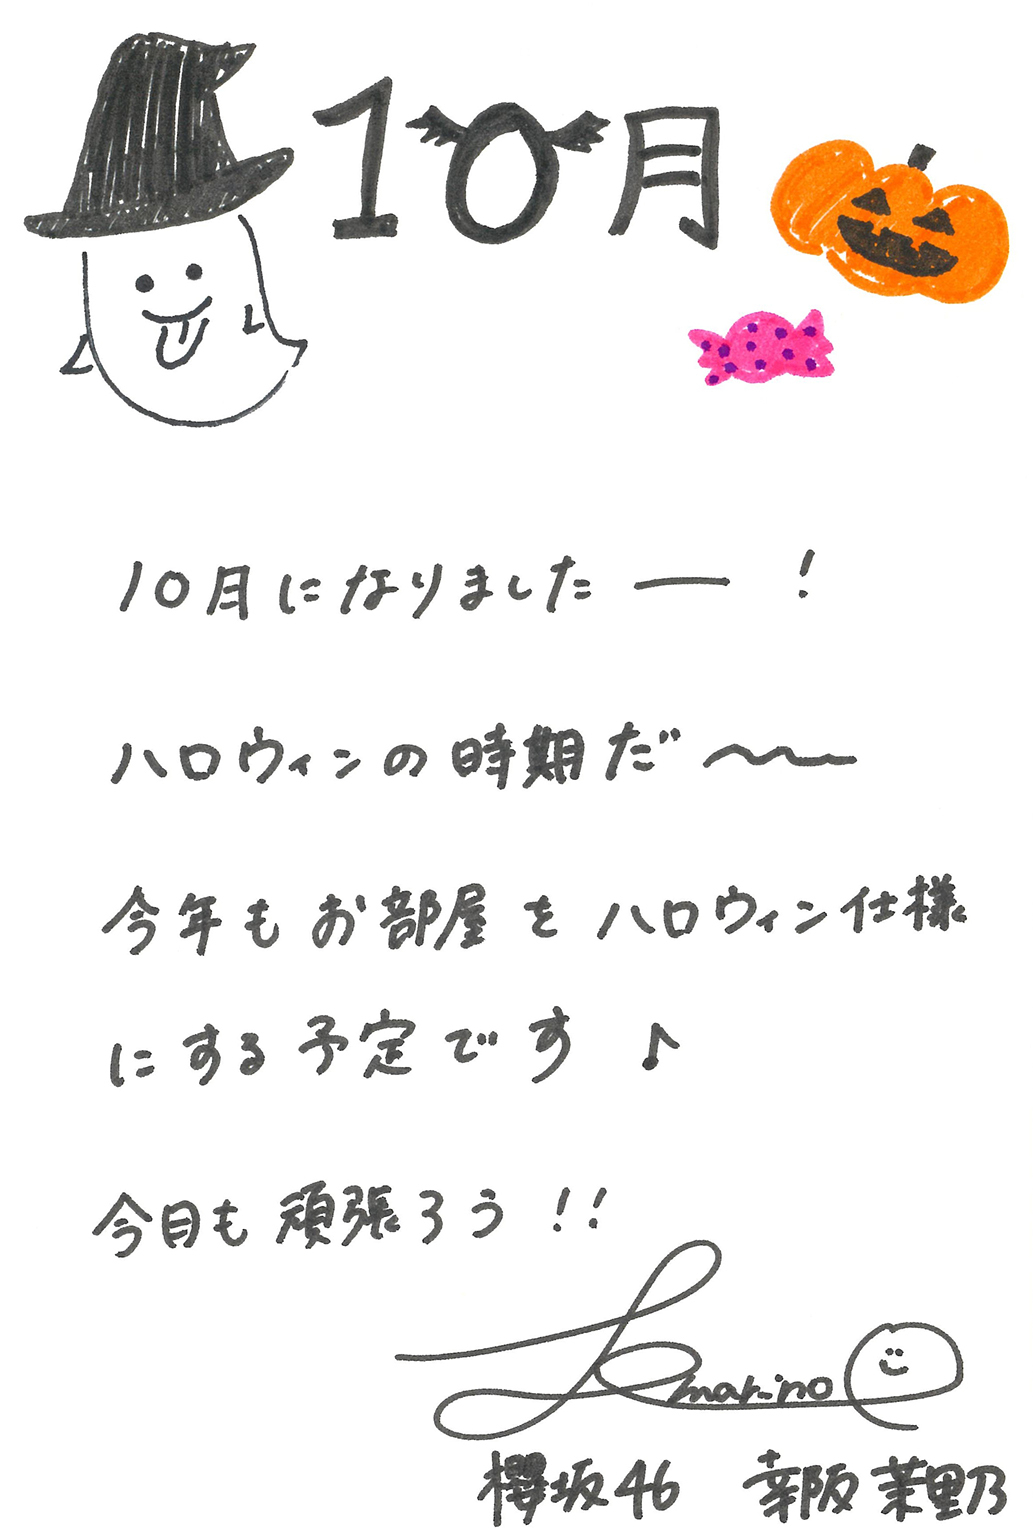 10月
10月になりましたー！
ハロウィンの時期だ〜
今年もお部屋をハロウィン仕様
にする予定です♪
今日も頑張ろう!!
marino
櫻坂46 幸阪茉里乃